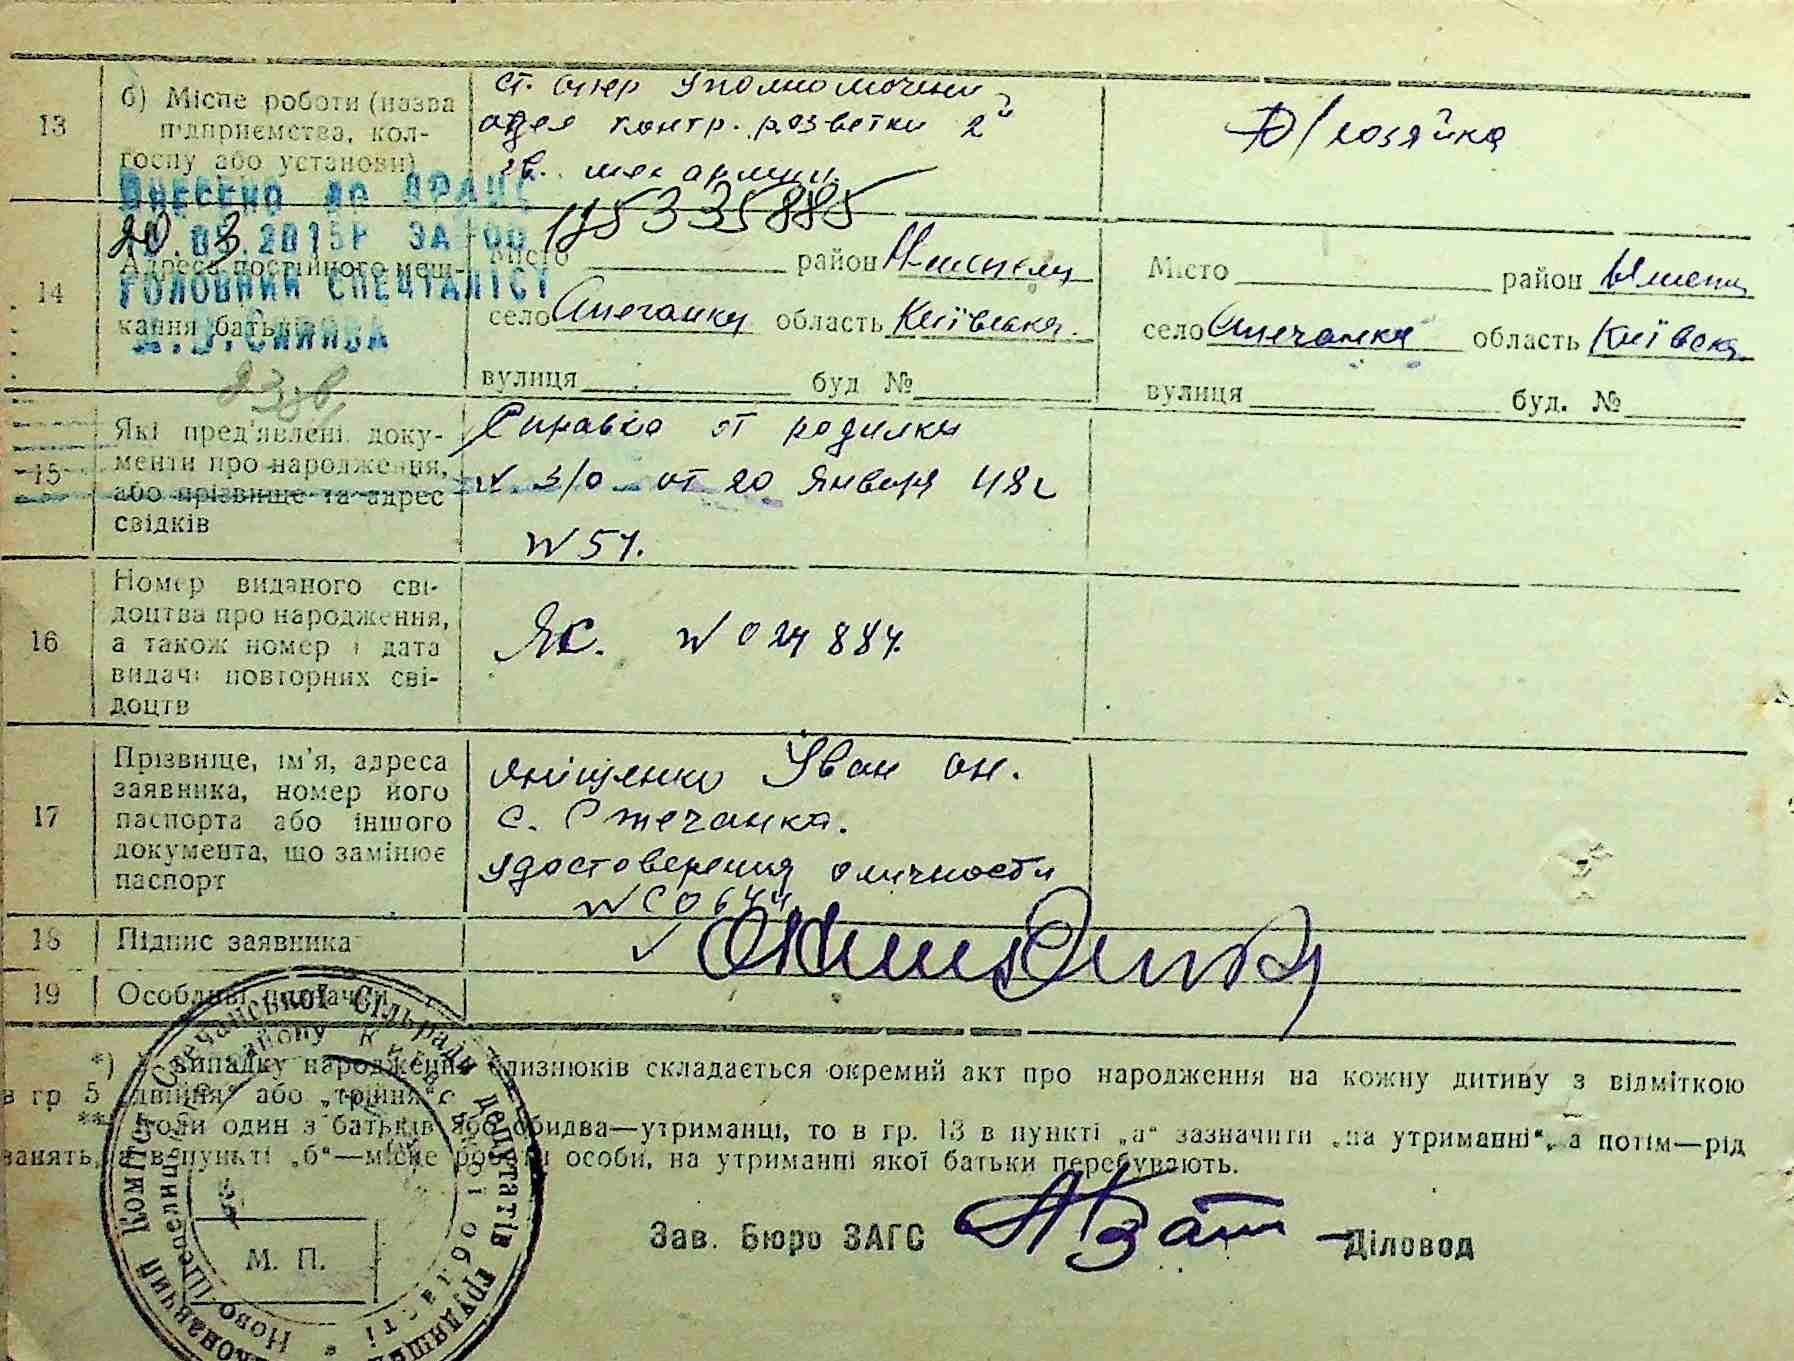 13
б) Місце роботи (назва
підприємства, кол-
госпу або установи)
ст. опер уполномочени
отдел контр. разветки 2й
гв. мех армии.
Д/хозяйка
ВНЕСЕНО ДО ДРАЦС
20.03.2015р ЗА 00 125335885
ГОЛОВНИЙ СПЕЦІАЛІСТ
14
Адреса постійного меш-
кання батьків
Місто район
село область Київська.
вулиця буд №
Місто район
село область Київска
вулиця буд. №
15
Які пред'явлені доку-
менти про народження,
або прізвище та адрес
свідків
Справка от родилки
от 20 января 48г
N 57.
16
Номер виданого сві-
доцтва про народження,
а також номер і дата
видачі повторних сві-
доцтв
ЯС. N 024884.
17
Прізвище, ім'я, адреса
заявника, номер його
паспорта або іншого
документа, що замінює
паспорт
Онищенко Иван он.
с. Стечанка.
удостоверения оличности
18
Підпис заявника
19
Особливі
*) У випадку народження близнюків складається окремий акт про народження на кожну дитину з відміткою
в гр 5 „двійня" або „трійня".
**) Коли один з батьків або обидва—утриманці, то в гр. 13 в пункті „а" зазначити „на утриманні", а потім—рід
занять, а в пункті „б"—місце роботи особи, на утриманні якої батьки перебувають.
Виконавчий Комітет Стечанської Сільради депутатів трудящих
Ново Шепелицького району Київської області
М. П.
Зав. Бюро ЗАГС Діловод